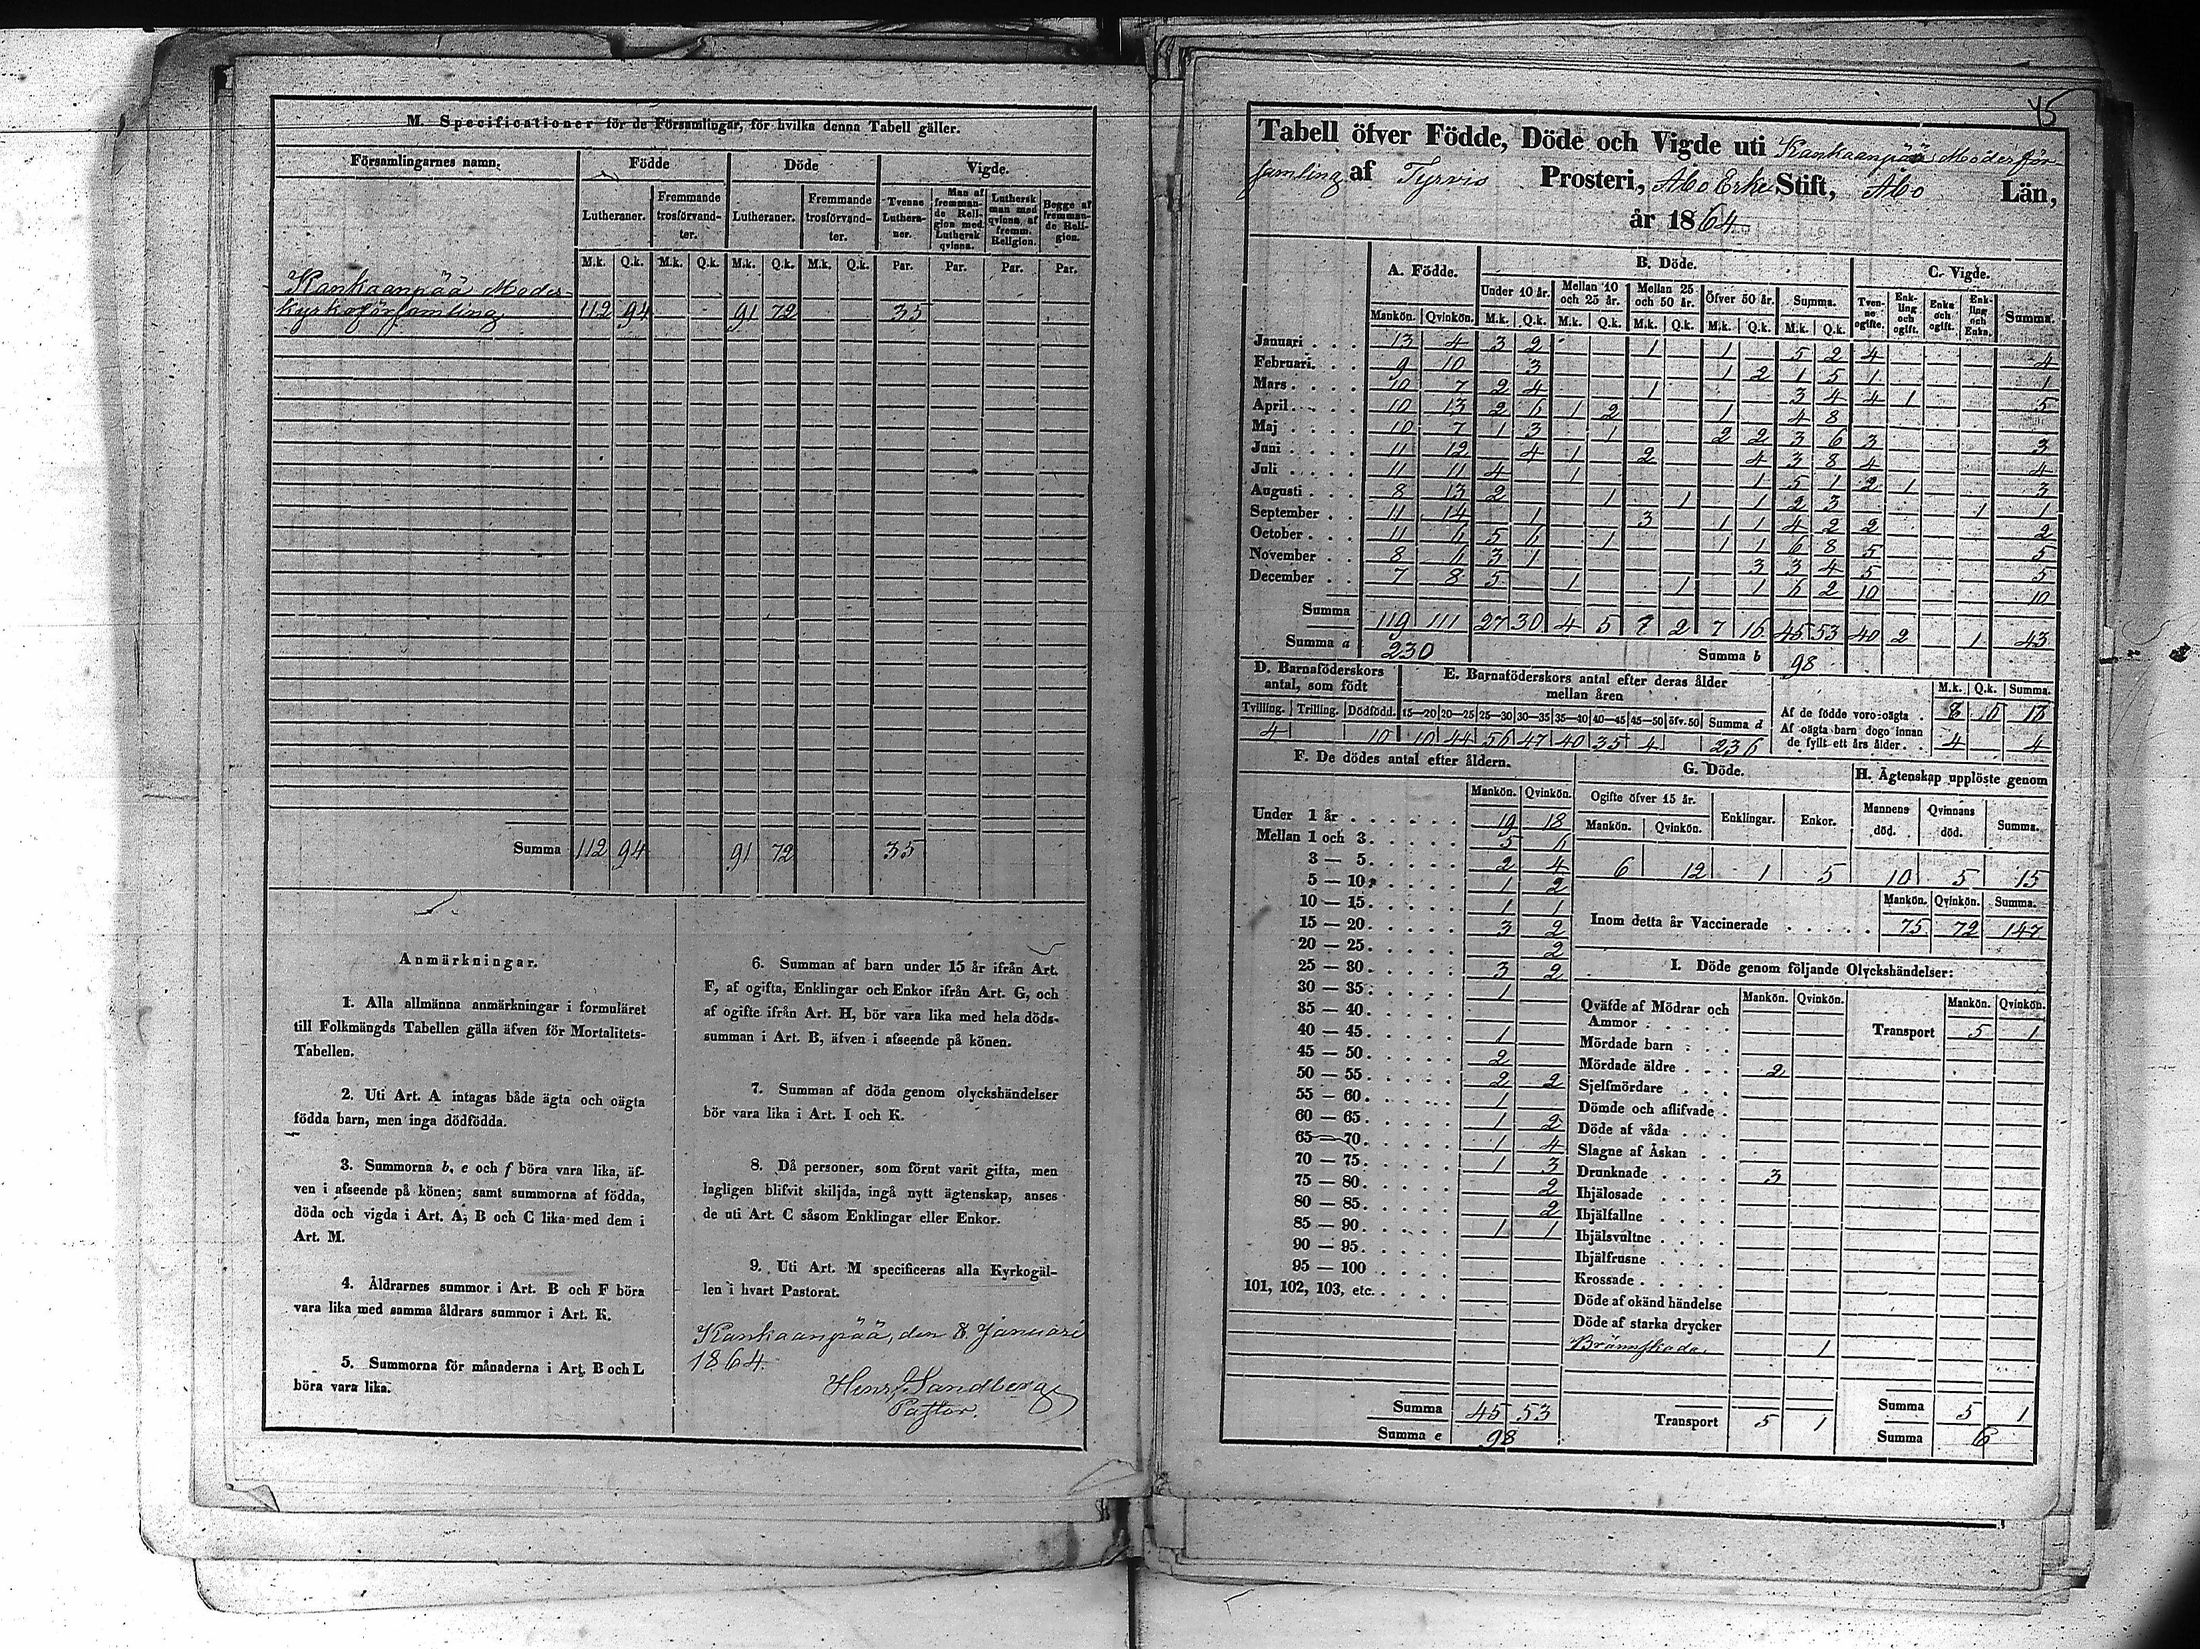 M. Specificationer för de Församlingar, för hvilka denna Tabell gäller.
Församlingarnes namn. Födde Döde Vigde.
Lutheraner. Fremmande trosförvandter. Lutheraner. Fremmande trosförvandter. Tvenne Lutheraner. Man af fremmande Religion med Luthersk qvinna. Luthersk man med qvinna af fremm. Religion. Begge af fremmande Religion.
M.k. Q.k. M.k. Q.k. M.k. Q.k. M.k. Q.k. Par. Par. Par. Par.
Kankaanpää Moder-
kyrkoförsamling 112 94 91 72 35
Summa 112 94 91 72 35
Anmärkningar.
1. Alla allmänna anmärkningar i formuläret
till Folkmängds Tabellen gälla äfven för Mortalitets-
Tabellen.
2. Uti Art. A intagas både ägta och oägta
födda barn, men inga dödfödda.
3. Summorna b, e och f böra vara lika, äf-
ven i afseende på könen; samt summorna af födda,
döda och vigda i Art. A, B och C lika med dem i
Art. M.
4. Åldrarnes summor i Art. B och F böra
vara lika med samma åldrars summor i Art. K.
5. Summorna för månaderna i Art. B och L
böra vara lika.
6. Summan af barn under 15 år ifrån Art.
F, af ogifta, Enklingar och Enkor ifrån Art. G, och
af ogifte ifrån Art. H, bör vara lika med hela döds-
summan i Art. B, äfven i afseende på könen.
7. Summan af döda genom olyckshändelser
bör vara lika i Art. I och K.
8. Då personer, som förut varit gifta, men
lagligen blifvit skiljda, ingå nytt ägtenskap, anses
de uti Art. C såsom Enklingar eller Enkor.
9. Uti Art. M specificeras alla Kyrkogäl-
len i hvart Pastorat.
Kankaanpää, den 8 Januari
1864.
Henr. Sandberg
Pastor.
45
Tabell öfver Födde, Döde och Vigde uti Kankaanpää Moderför-
samling af Tyrvis Prosteri, Åbo Erke Stift, Åbo Län,
år 1864
A. Födde. B. Döde. C. Vigde.
Under 10 år. Mellan 10 och 25 år. Mellan 25 och 50 år. Öfver 50 år. Summa. Tvenne ogifte. Enkling och ogift. Enka och ogift. Enkling och Enka. Summa.
Mankön. Qvinkön. M.k. Q.k. M.k. Q.k. M.k. Q.k. M.k. Q.k. M.k. Q.k.
Januari 13 4 3 2 1 1 5 2 4 4
Februari 9 10 3 1 2 1 5 1 1
Mars 10 7 2 4 1 3 4 4 1 5
April 10 13 2 6 1 2 1 4 8
Maj 10 7 1 3 1 2 2 3 6 3 3
Juni 11 12 4 1 2 4 3 8 4 4
Juli 11 11 4 1 1 5 1 2 1 3
Augusti 8 13 2 1 1 1 2 3 1 1
September 11 14 1 3 1 1 4 2 2 2
October 11 6 5 6 1 1 1 6 8 5 5
November 8 6 3 1 3 3 4 5 5
December 7 8 5 1 1 1 6 2 10 10
Summa 119 111 27 30 4 5 7 2 7 16 45 53 40 2 1 43
Summa a 230 Summa b 98
D. Barnaföderskors antal, som födt
E. Barnaföderskors antal efter deras ålder mellan åren
Tvilling. Trilling. Dödfödd. 15—20 20—25 25—30 30—35 35—40 40—45 45—50 öfv. 50 Summa d
4 10 10 44 56 47 40 35 4 236
M.k. Q.k. Summa.
Af de födde voro oägta 8 10 18
Af oägta barn dogo innan
de fyllt ett års ålder 4 4
F. De dödes antal efter åldern.
Mankön. Qvinkön.
Under 1 år 19 18
Mellan 1 och 3 5 6
3 — 5 2 4
5 — 10 1 2
10 — 15 1 1
15 — 20 3 2
20 — 25 2
25 — 30 3 2
30 — 35 1
35 — 40
40 — 45 1
45 — 50 2
50 — 55 2 2
55 — 60 1
60 — 65 1 2
65 — 70 1 4
70 — 75 1 3
75 — 80 2
80 — 85 2
85 — 90 1 1
90 — 95
95 — 100
101, 102, 103, etc.
Summa 45 53
Summa e 98
G. Döde.
Ogifte öfver 15 år. Enklingar. Enkor.
Mankön. Qvinkön.
6 12 1 5
H. Ägtenskap upplöste genom
Mannens död. Qvinnans död. Summa.
10 5 15
Mankön. Qvinkön. Summa.
Inom detta år Vaccinerade 75 72 147
I. Döde genom följande Olyckshändelser:
Mankön. Qvinkön. Mankön. Qvinkön.
Qväfde af Mödrar och
Ammor Transport 5 1
Mördade barn
Mördade äldre 2
Sjelfmördare
Dömde och aflifvade
Döde af våda
Slagne af Åskan
Drunknade 3
Ihjälosade
Ihjälfallne
Ihjälsvultne
Ihjälfrusne
Krossade
Döde af okänd händelse
Döde af starka drycker
Brännskada 1
Transport 5 1 Summa 5 1
Summa 6